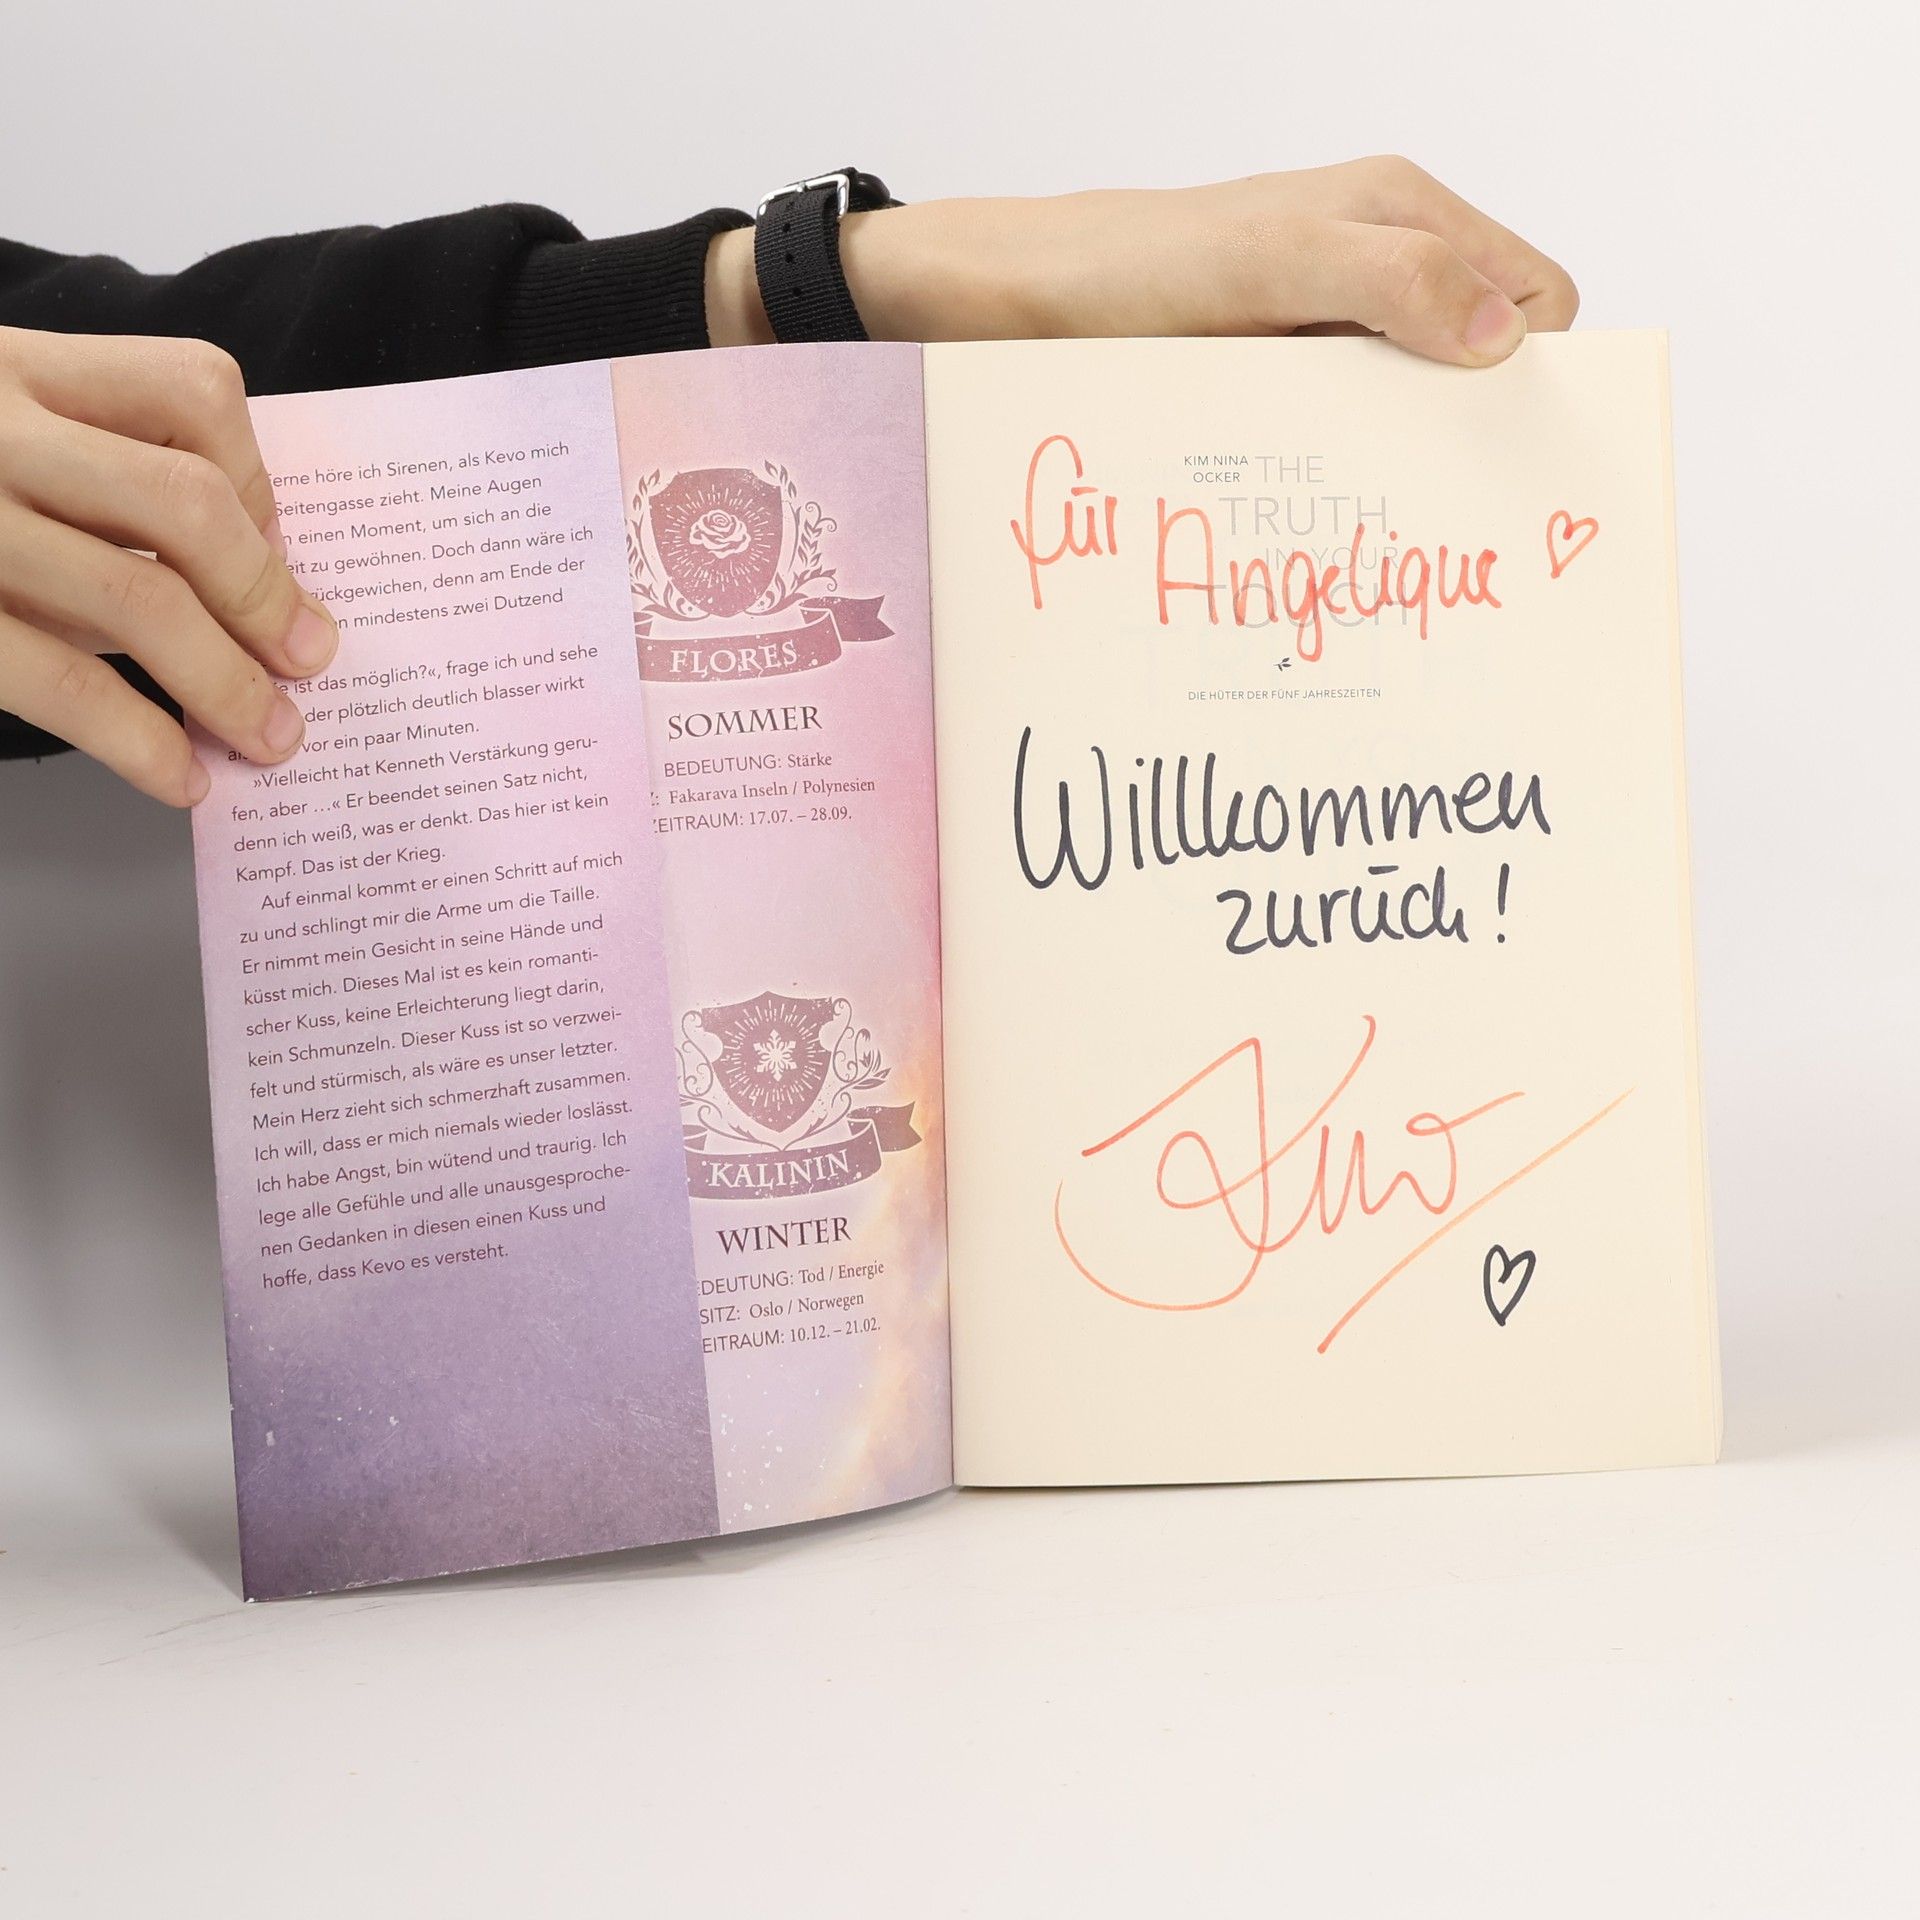 erne höre ich Sirenen, als Kevo mich
Seitengasse zieht. Meine Augen
n einen Moment, um sich an die
eit zu gewöhnen. Doch dann wäre ich
rückgewichen, denn am Ende der
n mindestens zwei Dutzend
e ist das möglich?«, frage ich und sehe
der plötzlich deutlich blasser wirkt
vor ein paar Minuten.
»Vielleicht hat Kenneth Verstärkung geru-
fen, aber …« Er beendet seinen Satz nicht,
denn ich weiß, was er denkt. Das hier ist kein
Kampf. Das ist der Krieg.
Auf einmal kommt er einen Schritt auf mich
zu und schlingt mir die Arme um die Taille.
Er nimmt mein Gesicht in seine Hände und
küsst mich. Dieses Mal ist es kein romanti-
scher Kuss, keine Erleichterung liegt darin,
kein Schmunzeln. Dieser Kuss ist so verzwei-
felt und stürmisch, als wäre es unser letzter.
Mein Herz zieht sich schmerzhaft zusammen.
Ich will, dass er mich niemals wieder loslässt.
Ich habe Angst, bin wütend und traurig. Ich
lege alle Gefühle und alle unausgesproche-
nen Gedanken in diesen einen Kuss und
hoffe, dass Kevo es versteht.
FLORES
SOMMER
BEDEUTUNG: Stärke
Z: Fakarava Inseln / Polynesien
ZEITRAUM: 17.07. – 28.09.
KALININ
WINTER
EDEUTUNG: Tod / Energie
SITZ: Oslo / Norwegen
EITRAUM: 10.12. – 21.02.
KIM NINA
OCKER
THE
TRUTH
IN YOUR
TOUCH
DIE HÜTER DER FÜNF JAHRESZEITEN
für Angelique
Willkommen
zurück!